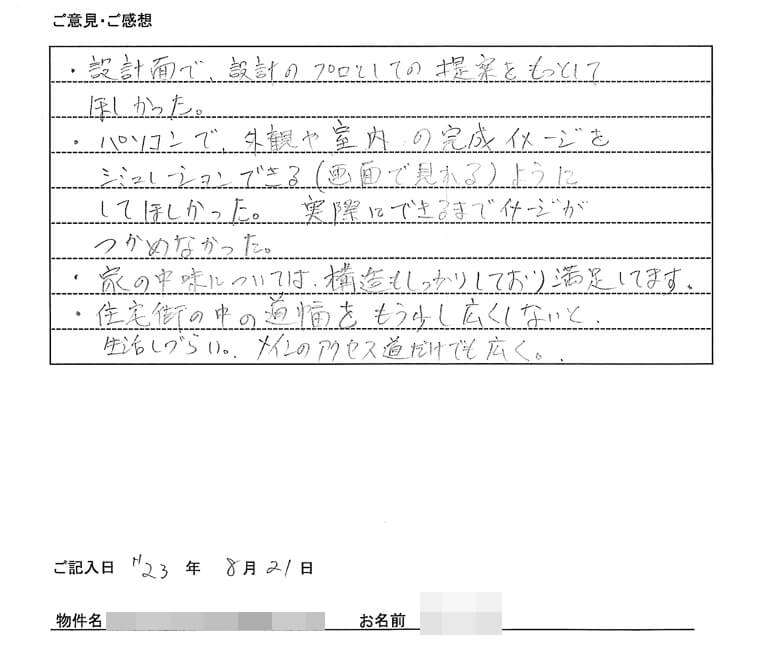 ご意見・ご感想
・設計面で、設計のプロとしての提案をもっとして
ほしかった。
・パソコンで、外観や室内の完成イメージを
シミュレーションできる(画面で見れる)ように
してほしかった。 実際にできるまでイメージが
つかめなかった。
・家の中味については、構造もしっかりしており満足してます。
・住宅街の中の道幅をもう少し広くしないと、
生活しづらい。メインのアクセス道だけでも広く。
ご記入日 H23 年 8月21日
物件名 お名前